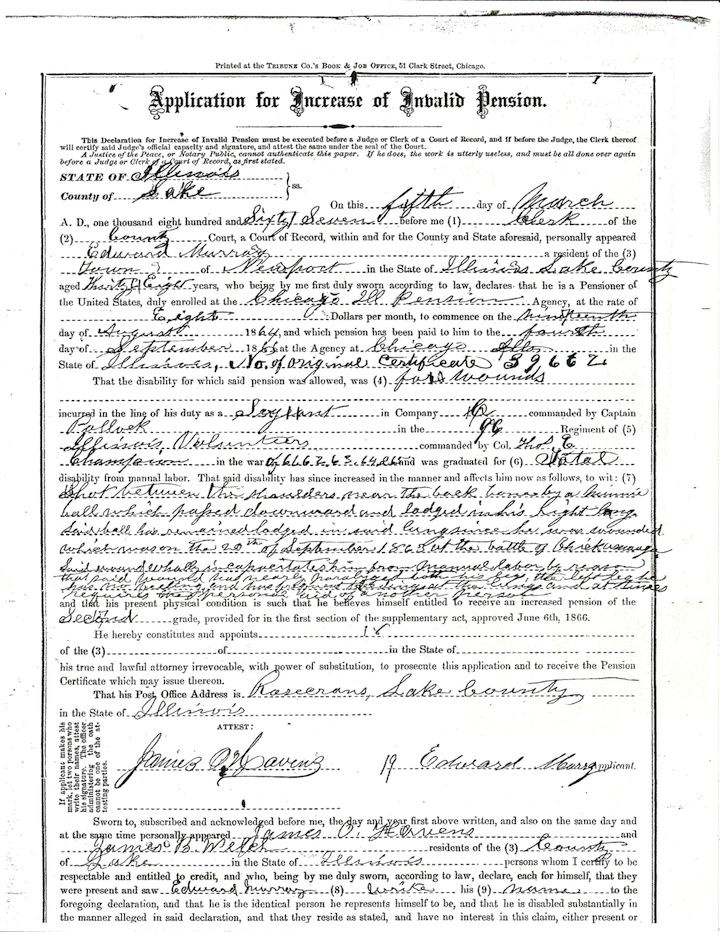 Printed at the TRIBUNE CO.'S BOOK & JOB OFFICE, 51 Clark Street, Chicago.
Application for Increase of Invalid Pension.
This Declaration for Increase of Invalid Pension must be executed before a Judge or Clerk of a Court of Record, and if before the Judge, the Clerk thereof
will certify said Judge's official capacity and signature, and attest the same under the seal of the Court.
A Justice of the Peace, or Notary Public, cannot authenticate this paper. If he does, the work is utterly useless, and must be all done over again
before a Judge or Clerk of a Court of Record, as first stated.
STATE OF Illinois
County of Lake } ss.
On this fifth day of March
A. D., one thousand eight hundred and Sixty Seven before me (1) Clerk of the
(2) County Court, a Court of Record, within and for the County and State aforesaid, personally appeared
Edward Murray a resident of the (3)
Town of Newport in the State of Illinois Lake County
aged Thirty Eight years, who being by me first duly sworn according to law, declares that he is a Pensioner of
the United States, duly enrolled at the Chicago Ill Pension Agency, at the rate of
Eight Dollars per month, to commence on the Nineteenth
day of August 1864, and which pension has been paid to him to the fourth
day of September 1866 at the Agency at Chicago Ills in the
State of Illinois, No. of Original Certificate 39662
That the disability for which said pension was allowed, was (4) wounds
incurred in the line of his duty as a in Company commanded by Captain
Pollock in the 96 Regiment of (5)
Illinois Volunteers commanded by Col. Thos E
Champion in the war of 61.62.63.64. and was graduated for (6) Total
disability from manual labor. That said disability has since increased in the manner and affects him now as follows, to wit: (7)
Shot between the shoulders near the back bone by a minnie
ball which passed downward and lodged in his right lung
Said ball has remained lodged in said lung since he was wounded
which was on the 20th of September 1863 at the battle of Chickamauga
Said wound wholly incapacitates him from manual labor by reason
that said wound has nearly paralized both his legs, the left leg he
has no feeling and at times
requires the personal aid of another person
and that his present physical condition is such that he believes himself entitled to receive an increased pension of the
Second grade, provided for in the first section of the supplementary act, approved June 6th, 1866.
He hereby constitutes and appoints
of the (3) of in the State of
his true and lawful attorney irrevocable, with power of substitution, to prosecute this application and to receive the Pension
Certificate which may issue thereon.
That his Post Office Address is Rosecrans, Lake County
in the State of Illinois
ATTEST:
If applicant makes his
mark, let two persons who
write their names, attest
his signature. The officer
administering the oath
cannot be one of the at-
testing parties.
James O. Havens Edward Murray Applicant.
Sworn to, subscribed and acknowledged before me, the day and year first above written, and also on the same day and
at the same time personally appeared James O. Havens and
James B. Welch residents of the (3) County
of Lake in the State of Illinois persons whom I certify to be
respectable and entitled to credit, and who, being by me duly sworn, according to law, declare, each for himself, that they
were present and saw Edward Murray (8) write his (9) name to the
foregoing declaration, and that he is the identical person he represents himself to be, and that he is disabled substantially in
the manner alleged in said declaration, and that they reside as stated, and have no interest in this claim, either present or